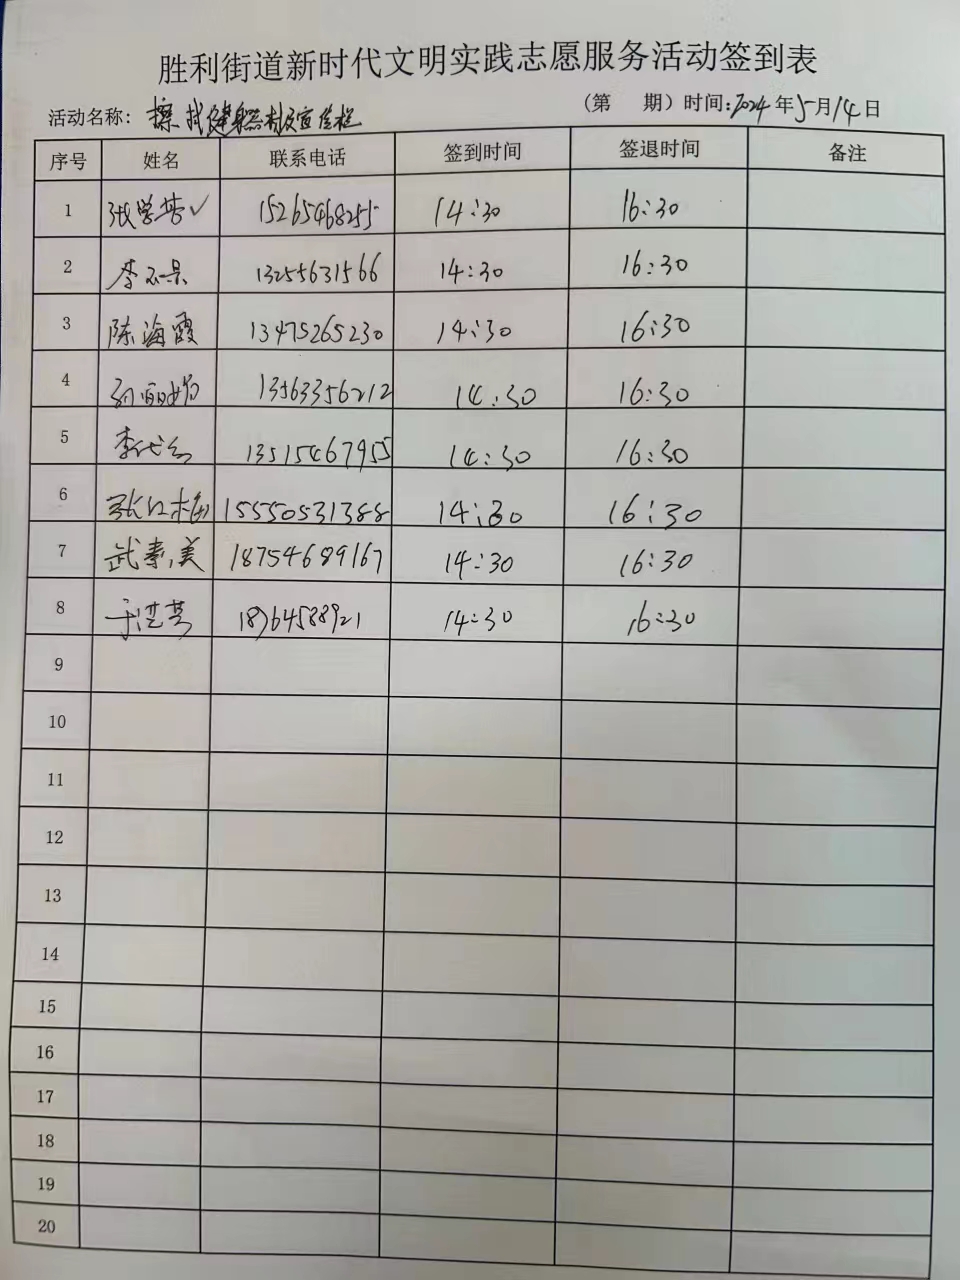 胜利街道新时代文明实践志愿服务活动签到表
活动名称: 擦拭健身器材及宣传栏 (第 期) 时间:2024年5月14日
序号 姓名 联系电话 签到时间 签退时间 备注
1 张学芳✓ 15265468255 14:30 16:30
2 李 13255631566 14:30 16:30
3 陈海霞 13475265230 14:30 16:30
4 孙丽娟 13563356212 14:30 16:30
5 李代 13515467955 14:30 16:30
6 张红梅 15550531388 14:30 16:30
7 武素美 18754689167 14:30 16:30
8 于 18764588921 14:30 16:30
9
10
11
12
13
14
15
16
17
18
19
20